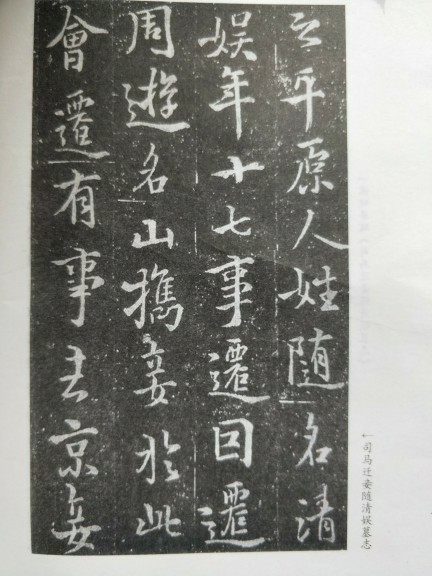 之平原人姓随名清
娱年十七事遷因遷
周遊名山攜妾於此
會遷有事去京妾
←司马迁妾随清娱墓志